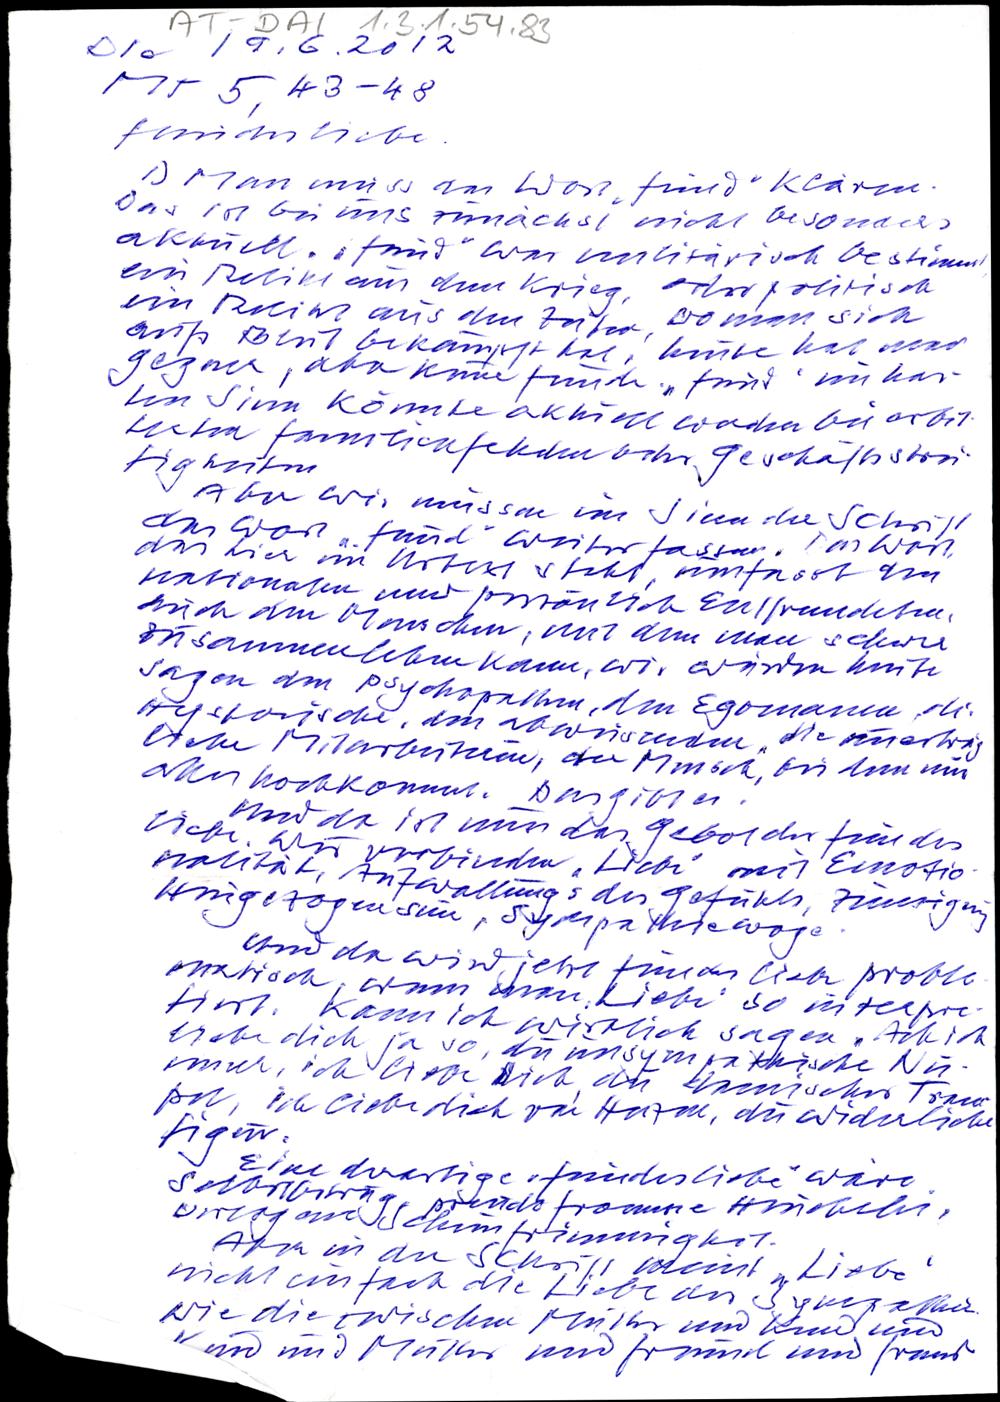 AT-DAI 1.3.1.54.83
Die 19.6.2012
Mt 5, 43-48
Feindesliebe.
1) Man muss das Wort „Feind" klären.
Das ist bei uns zunächst nicht besonders
aktuell. „Feind" war militärisch bestimmt,
ein Relikt aus dem Krieg, oder politisch
ein Relikt aus der Zeit, wo man sich
aufs Blut bekämpft hat, heute hat man
Gegner, aber keine Feinde. „Feind" im har-
ten Sinn könnte aktuell werden bei erbit-
terten Familienfehden oder Geschäftsstrei-
tigkeiten
Aber wir müssen im Sinn der Schrift
das Wort „Feind" weiter fassen. Das Wort,
das hier im Urtext steht, umfasst den
nationalen und persönlich Entfremdeten,
auch den Menschen, mit dem man schwer
zusammenleben kann, wir würden heute
sagen den Psychopathen, den Egomanen, die
Hysterische, den abweisenden, die unerträg
liche Mitarbeiterin, der Mensch, bei dem mir
alles hochkommt. Das gibt es.
Und da ist nun das Gebot der Feindes
liebe. Wir verbinden „Liebe" mit Emotio-
nalität, Aufwallung des Gefühls, Zuneigung
Hingezogensein, Sympathiewoge.
Und da wird jetzt Feindesliebe proble-
matisch, wenn man „Liebe" so interpre-
tiert. Kann ich wirklich sagen „Ach ich
liebe dich ja so, du unsympathische Nu-
mmer, ich liebe dich, du komischer Tram-
pel, ich liebe dich von Herzen, du widerliche
Figur.
Eine derartige „Feindesliebe" wäre
Selbstbetrug, pseudofromme Heuchelei,
verlogene Scheinfrömmigkeit.
Aber in der Schrift meint „Liebe"
nicht einfach die Liebe der Sympathie
wie die zwischen Mutter und Kind und
und und Mutter und Freund und Freund